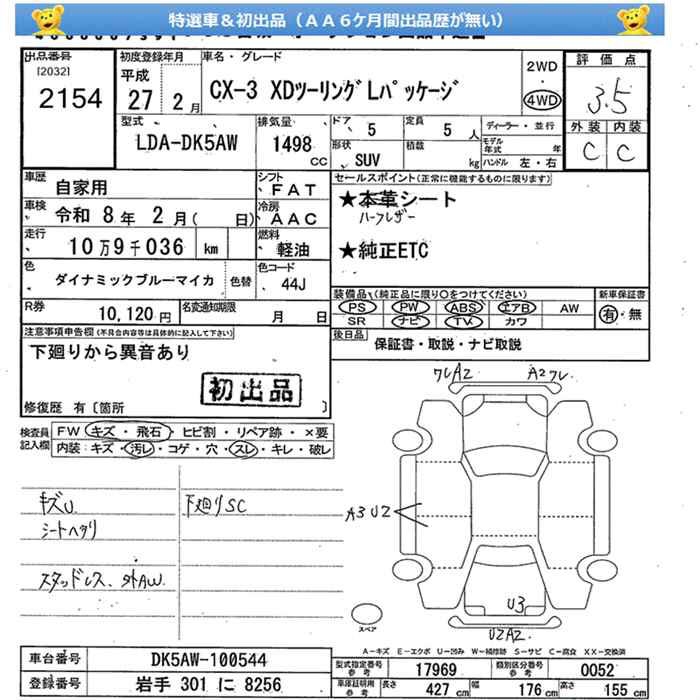 特選車＆初出品（ＡＡ６ケ月間出品歴が無い）
出品番号
[2032]
2154
初度登録年月
平成
27 2 月
車名・グレード
CX-3 XDツーリングLパッケージ
2WD
4WD
評価点
3.5
外装 内装
C C
型式
LDA-DK5AW
排気量
1498
CC
ドア
5
定員
5 人
ディーラー・並行
形状
SUV
積載
kg
モデル年式
年
ハンドル 左・右
車歴
自家用
シフト
FAT
車検
令和 8年 2月( 日)
冷房
AAC
走行
10万9千036 km
燃料
軽油
色
ダイナミックブルーマイカ
色替
色コード
44J
R券
10,120円
名変通知期限
月 日
セールスポイント(正常に機能するものに限ります)
★本革シート
ハーフレザー
★純正ETC
装備品(純正品に限り○をつけてください)
PS PW ABS エアB AW
SR ナビ TV カワ
新車保証書
有・無
後日品
保証書・取説・ナビ取説
注意事項申告欄(不具合内容等は具体的に記入して下さい)
下廻りから異音あり
初出品
修復歴 有〔箇所 〕
検査員記入欄
FW キズ・飛石・ヒビ割・リペア跡・×要
内装：キズ・汚レ・コゲ・穴・スレ・キレ・破レ
キズU
シートヘタリ
スタッドレス、外AW
下廻りSC
ワレA2
A2ワレ
A3 U2
U3
U2A2
スペア
A－キズ E－エクボ U－凹み W－補修跡 S－サビ C－腐食 XX－交換済
車台番号
DK5AW-100544
登録番号
岩手 301 に 8256
型式指定番号
参考
17969
類別区分番号
参考
0052
車庫証明用
参考
長さ
427 cm
幅
176 cm
高さ
155 cm